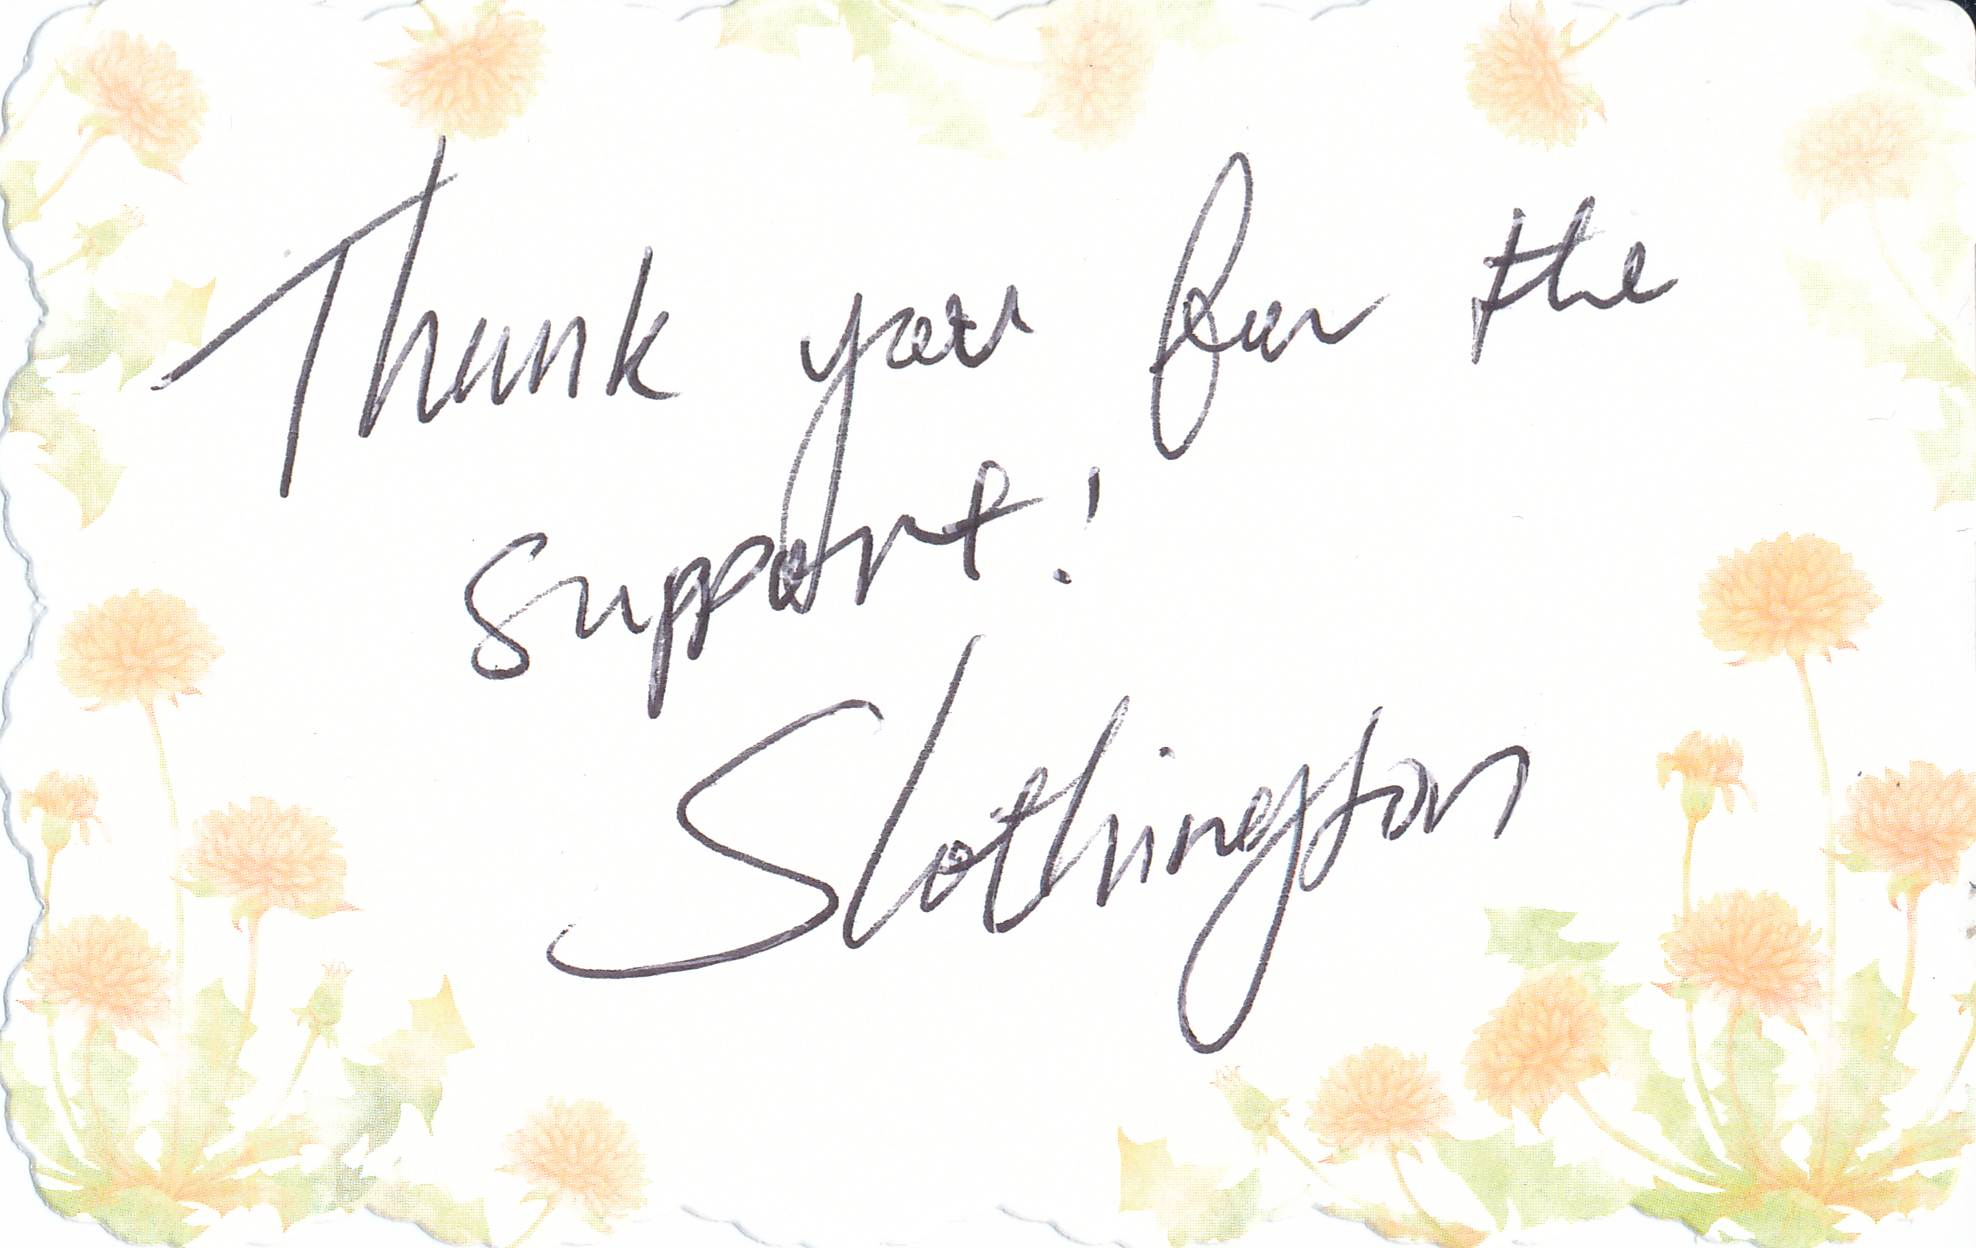 Thank you for the
support!
Slothington